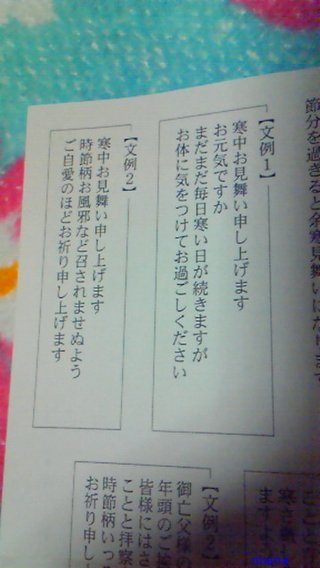 節分を過ぎると余寒見舞いになります
【文例1】
寒中お見舞い申し上げます
お元気ですか
まだまだ毎日寒い日が続きますが
お体に気をつけてお過ごしください
【文例2】
寒中お見舞い申し上げます
時節柄お風邪など召されませぬよう
ご自愛のほどお祈り申し上げます
寒さ
ますよ
【文例2】
御亡父様の
年頭のご挨
皆様にはさ
ことと拝察
時節柄いっ
お祈り申し